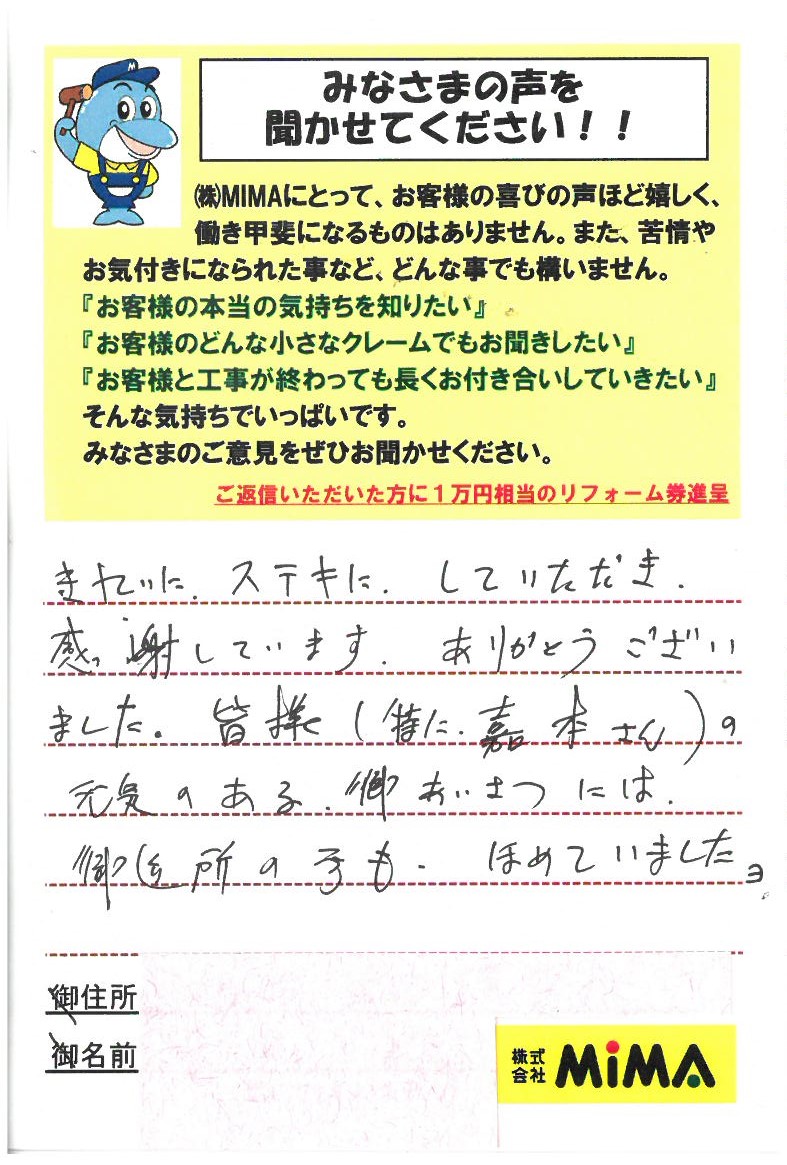 みなさまの声を
聞かせてください！！
㈱MIMAにとって、お客様の喜びの声ほど嬉しく、
働き甲斐になるものはありません。また、苦情や
お気付きになられた事など、どんな事でも構いません。
『お客様の本当の気持ちを知りたい』
『お客様のどんな小さなクレームでもお聞きしたい』
『お客様と工事が終わっても長くお付き合いしていきたい』
そんな気持ちでいっぱいです。
みなさまのご意見をぜひお聞かせください。
ご返信いただいた方に１万円相当のリフォーム券進呈
きれいに、ステキに、していただき、
感謝しています。ありがとうござい
ました。皆様（特に、嘉本さん）の
元気のある、御あいさつには、
御近所の子も、ほめていましたヨ。
御住所
御名前
株式会社 MiMA